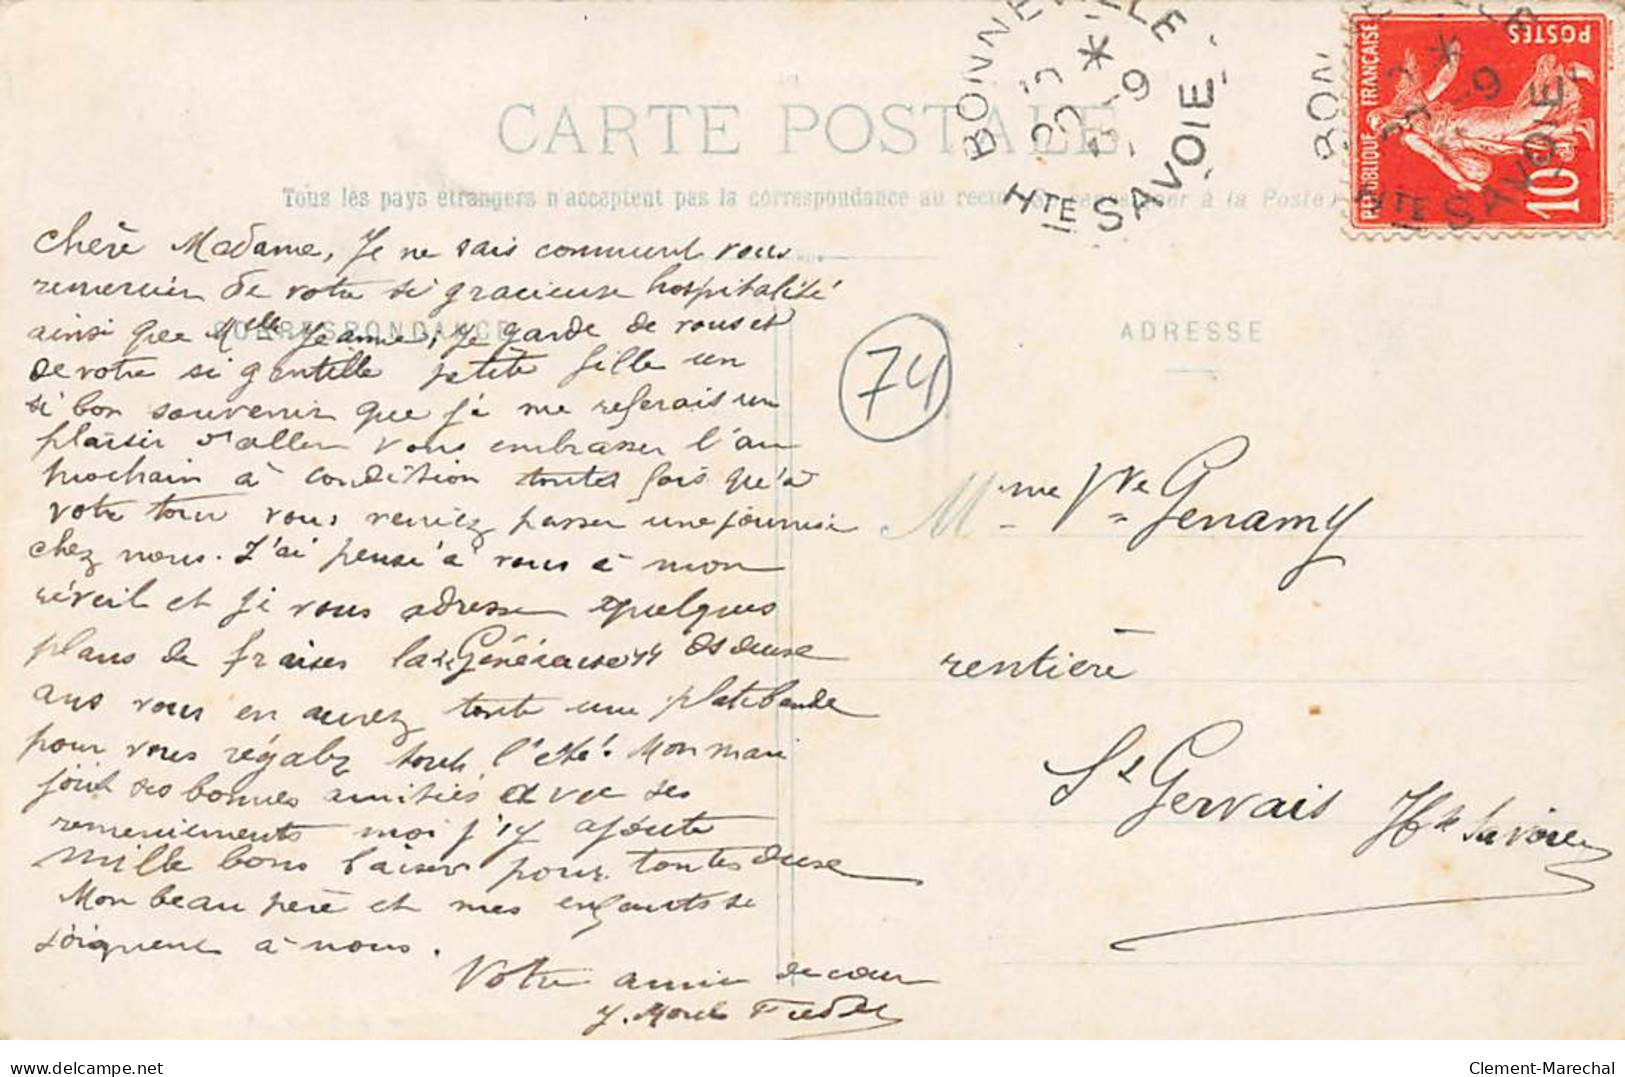 CARTE POSTALE
Tous les pays étrangers n'acceptent pas la correspondance au recto à la Poste
BONNEVILLE
Hte SAVOIE
BON
Hte SAVOIE
REPUBLIQUE FRANÇAISE
POSTES
10
CORRESPONDANCE
ADRESSE
74
Chère Madame, Je ne sais comment vous
remercier de votre si gracieuse hospitalité
ainsi que Melle Jeanne, je garde de vous et
de votre si gentille petite fille un
si bon souvenir que je me referais un
plaisir d'aller vous embrasser l'an
prochain à condition toutes fois qu'à
votre tour vous veniez passer une journée
chez nous. J'ai pensé à vous à mon
réveil et je vous adresse quelques
plans de fraises la "Générause" ds deux
ans vous en aurez toute une platebande
pour vous régaler tout l'été. Mon mari
joint ses bonnes amitiés avec ses
remerciements moi j'y ajoute
mille bons baisers pour toutes deux
Mon beau père et mes enfants se
joignent à nous.
Votre amie de cœur
J. Morel
Mme Vve Genamy
rentière
St Gervais Hte Savoie
delcampe.net
Clement-Marechal